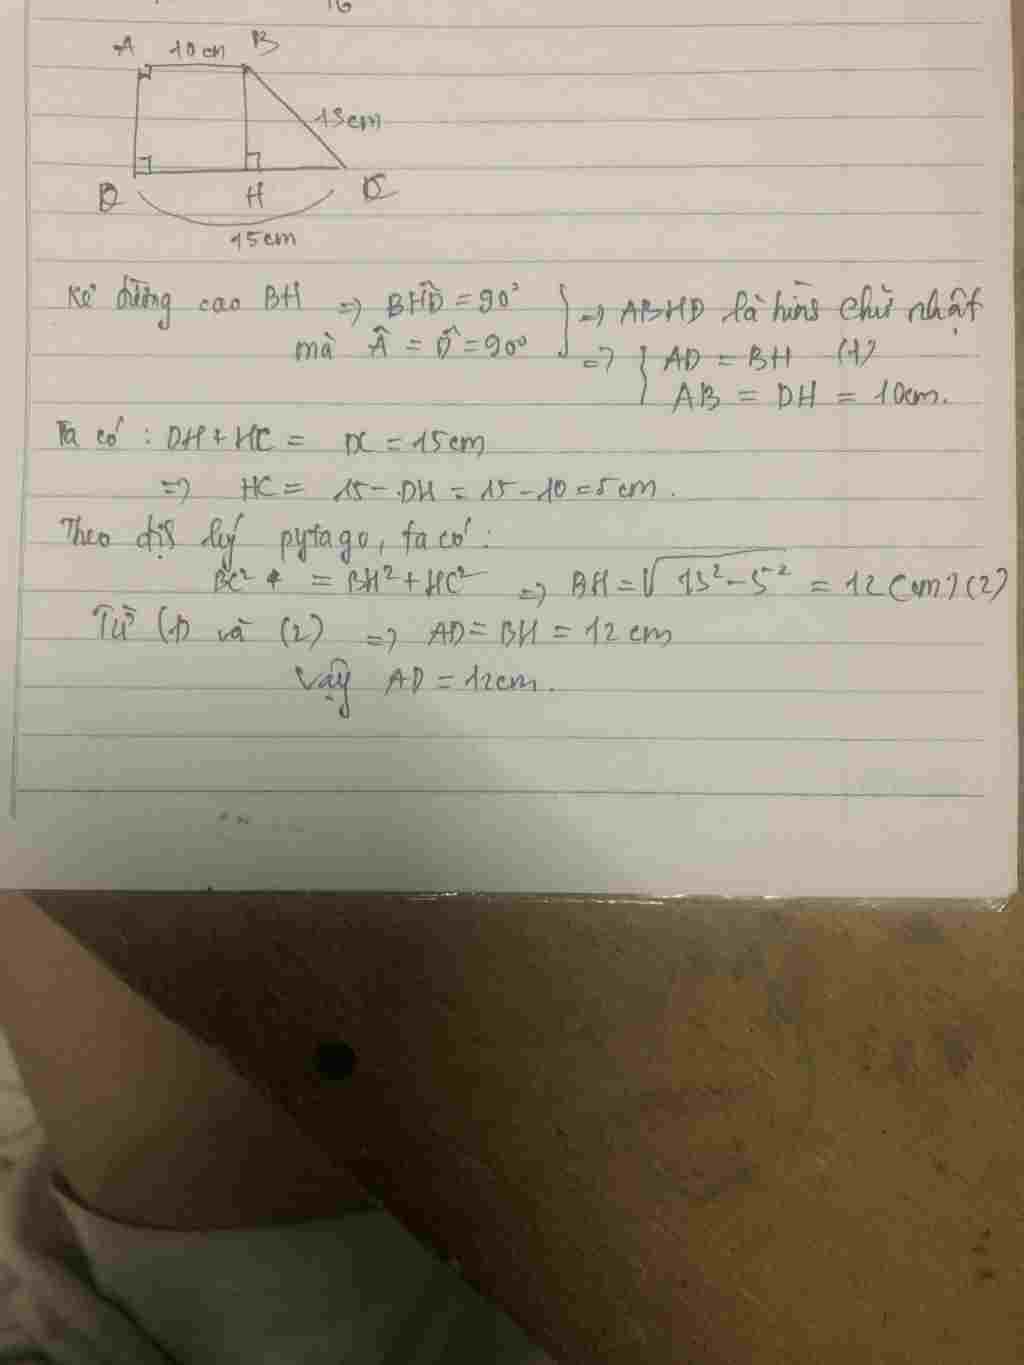 16
A 10cm B
13cm
D H C
15cm
Kẻ đường cao BH => BĤD = 90° } => ABHD là hình chữ nhật
mà Â = D̂ = 90° => { AD = BH (1)
AB = DH = 10cm.
Ta có : DH + HC = DC = 15cm
=> HC = 15 - DH = 15 - 10 = 5cm.
Theo định lý pytago, ta có :
BC² = BH² + HC² => BH = √13² - 5² = 12 (cm) (2)
Từ (1) và (2) => AD = BH = 12 cm
Vậy AD = 12cm.